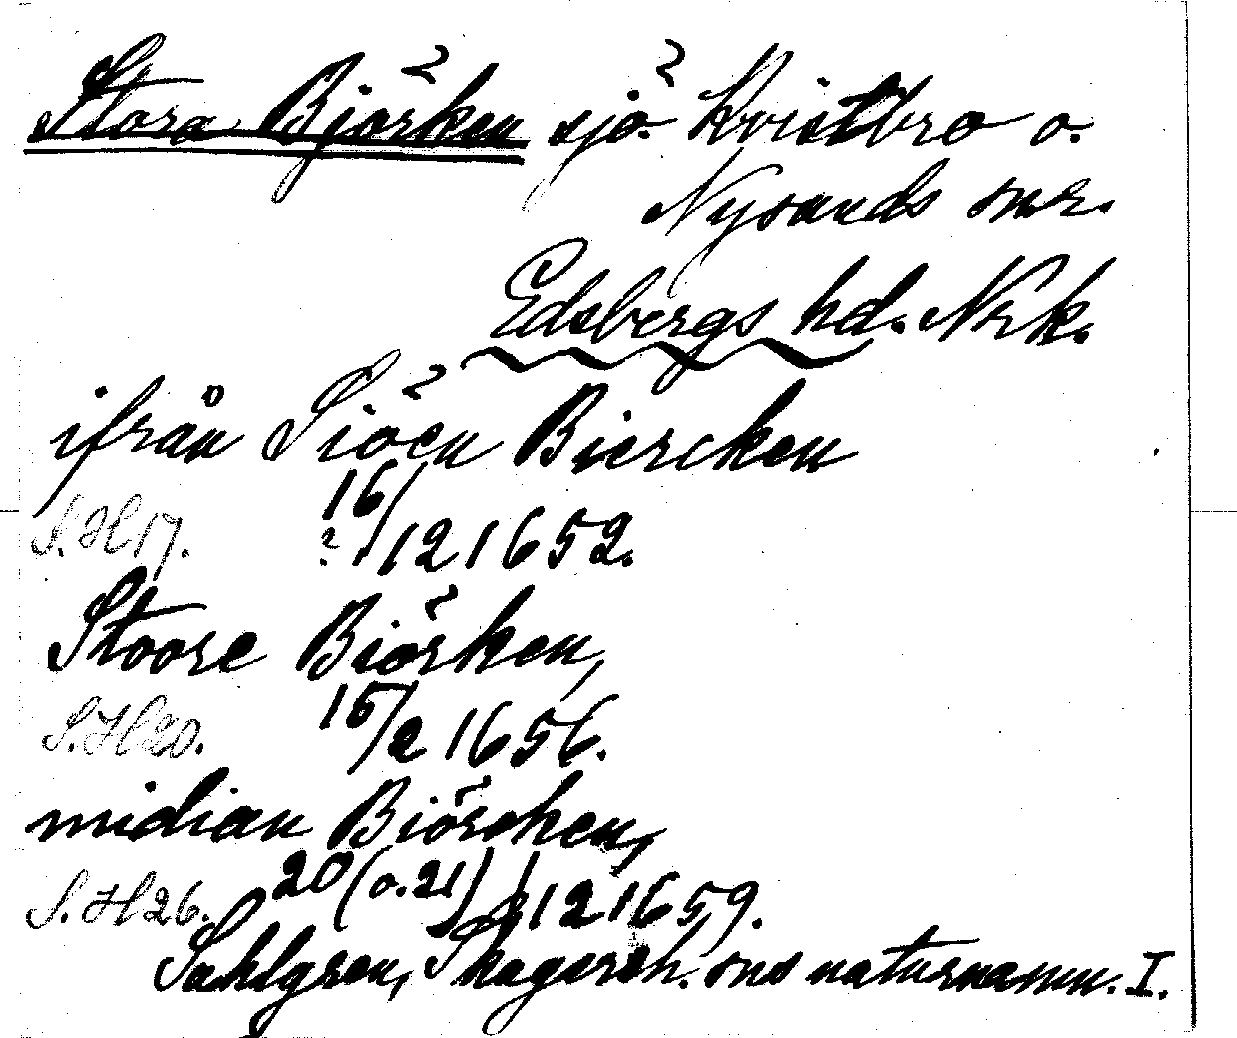 Stora Björken sjö. Kvistbro o.
Nysunds snr.
Edsbergs hd. Nrk.
ifrån Siöen Biercken
S.H17. 16/12 1652.
?
Stoore Biörken,
S.H20. 15/2 1656.
midian Biörchen,
S.H26. 20(o.21)/12 1659.
Sahlgren, Skagersh. sns naturnamn. I.